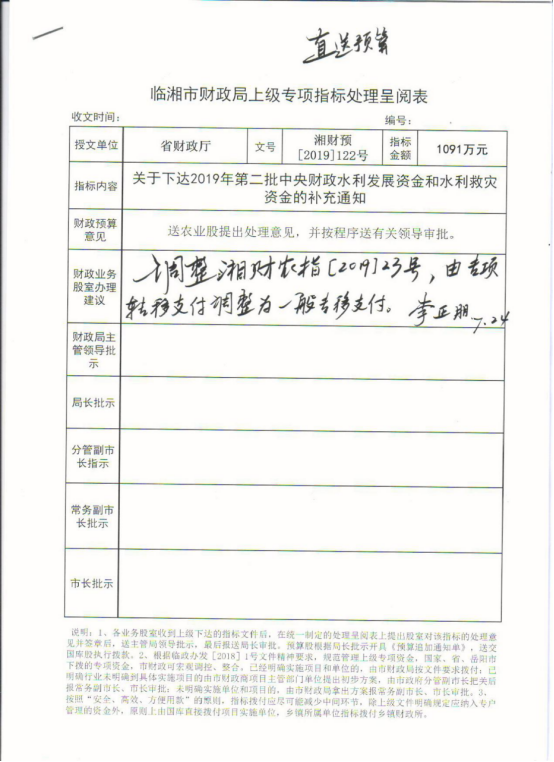 直送预算
临湘市财政局上级专项指标处理呈阅表
收文时间： 编号：
授文单位 省财政厅 文号 湘财预[2019]122号 指标金额 1091万元
指标内容 关于下达2019年第二批中央财政水利发展资金和水利救灾
资金的补充通知
财政预算
意见
送农业股提出处理意见，并按程序送有关领导审批。
财政业务
股室办理
建议
调整湘财农指[2019]23号，由专项
转移支付调整为一般转移支付。 李正朋 7.24
财政局主
管领导批
示
局长批示
分管副市
长指示
常务副市
长批示
市长批示
说明：1、各业务股室收到上级下达的指标文件后，在统一制定的处理呈阅表上提出股室对该指标的处理意
见并签章后，送主管局领导批示，最后报送局长审批。预算股根据局长批示开具《预算追加通知单》，送交
国库股执行拨款。2、根据临政办发[2018]1号文件精神要求，规范管理上级专项资金，国家、省、岳阳市
下拨的专项资金，市财政可宏观调控、整合。已经明确实施项目和单位的，由市财政局按文件要求拨付；已
明确行业未明确到具体实施项目的由市财政商项目主管部门单位提出初步方案，由市政府分管副市长把关后
报常务副市长、市长审批；未明确实施单位和项目的，由市财政局拿出方案报常务副市长、市长审批。3、
按照“安全、高效、方便用款”的原则，指标拨付应尽可能减少中间环节，除上级文件明确规定应纳入专户
管理的资金外，原则上由国库直接拨付项目实施单位，乡镇所属单位指标拨付乡镇财政所。